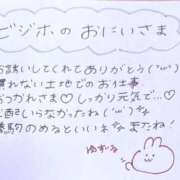 ビジホのおにいさま
お誘いしてくれてありがとう(^w^)
慣れない土地でのお仕事
おつかれさま♡しっかり元気で…♡
心配いらなかったね(^w^)
のめるといいネ またね！
ゆずる